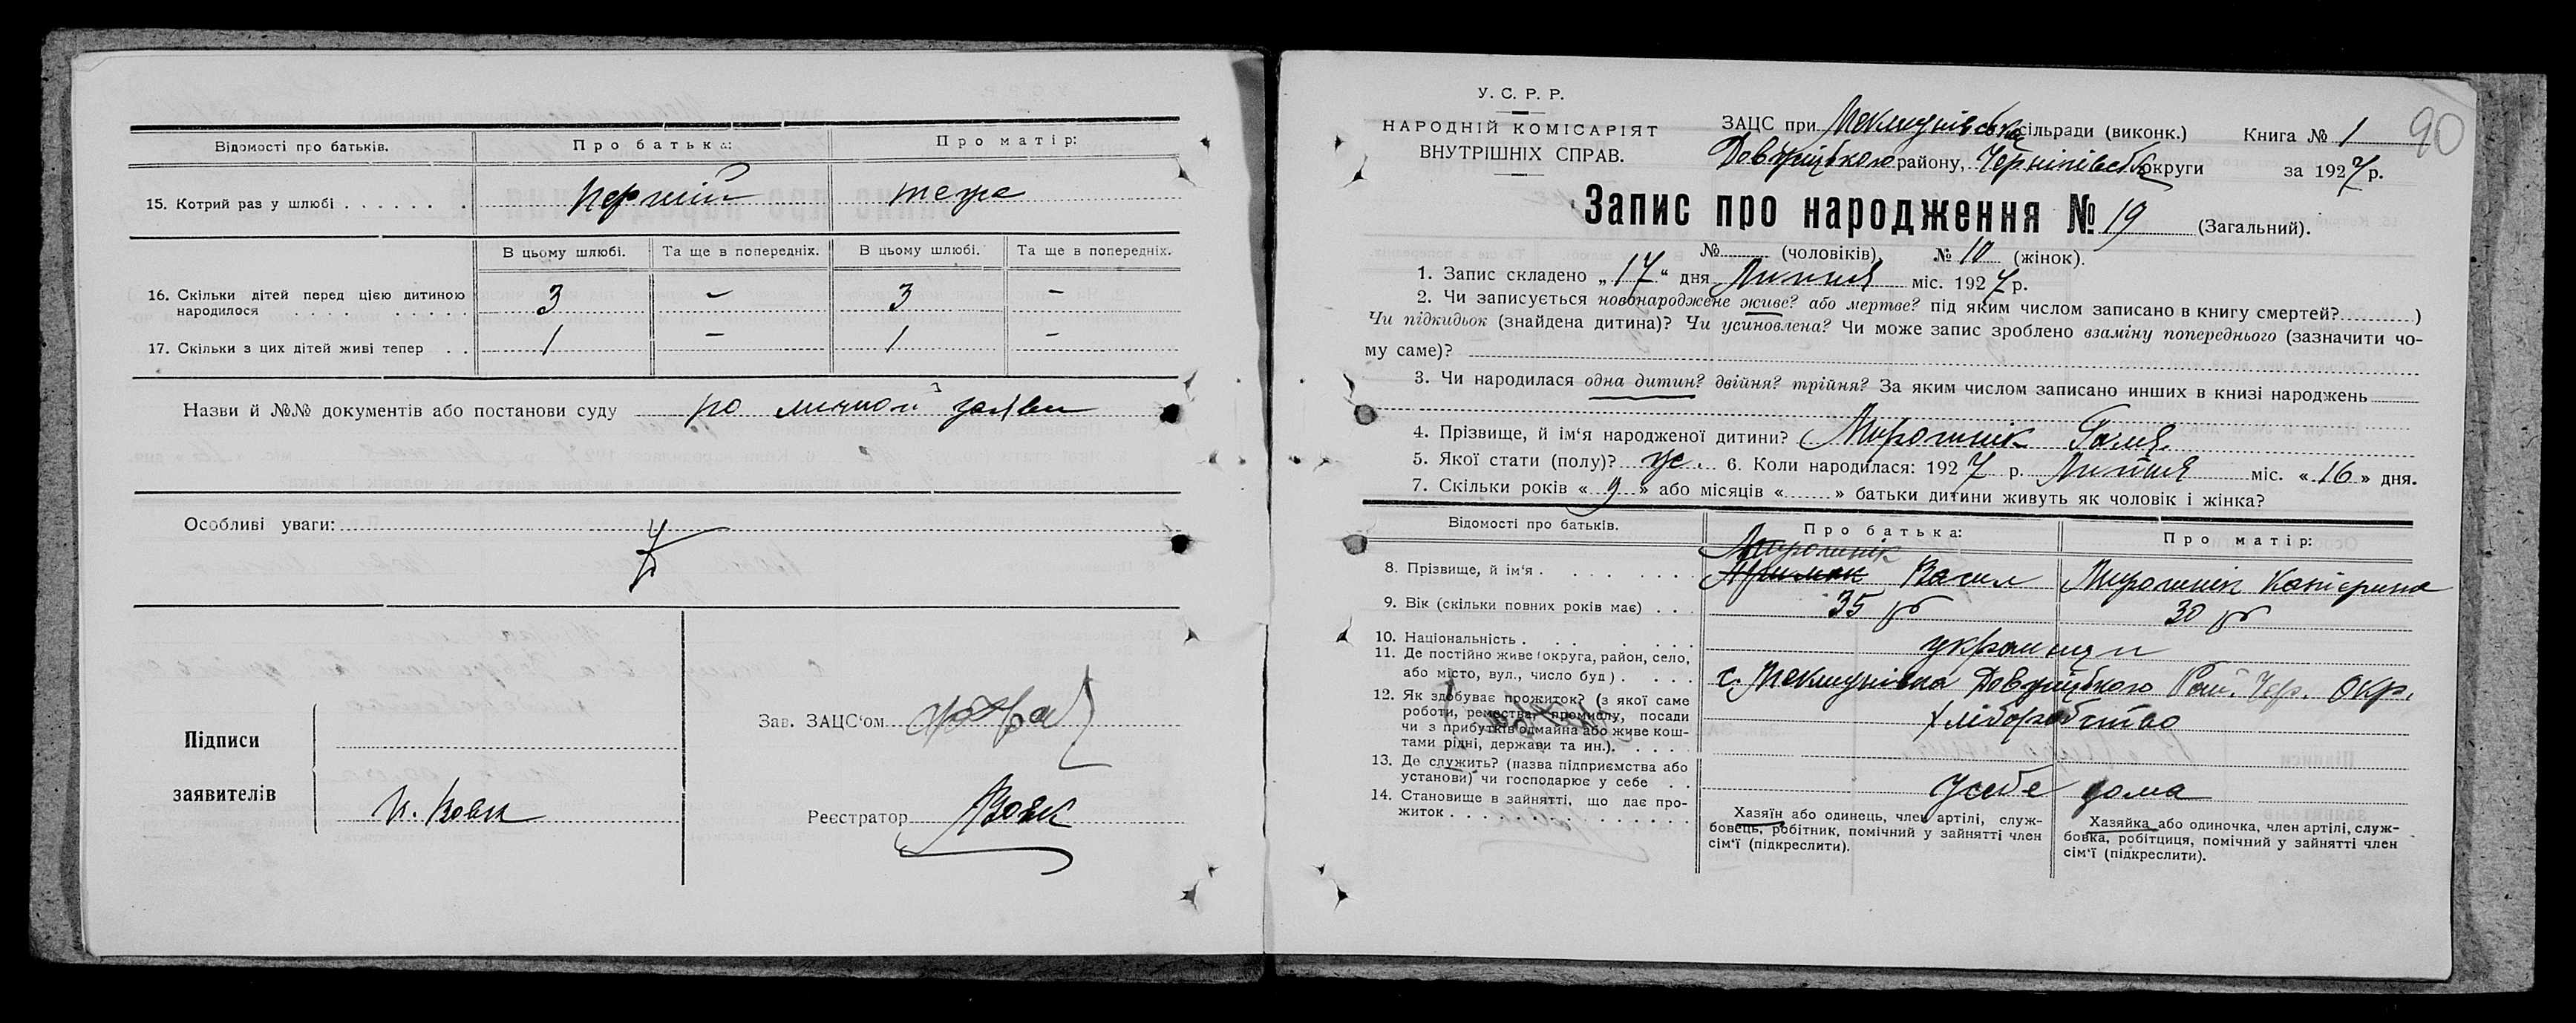 Відомості про батьків. Про батька: Про матір:
15. Котрий раз у шлюбі . . . . . . . перший теже
В цьому шлюбі. Та ще в попередніх. В цьому шлюбі. Та ще в попередніх.
16. Скільки дітей перед цією дитиною
народилося . . . . . . . . . . 3 – 3 –
17. Скільки з цих дітей живі тепер . . 1 – 1 –
Назви й №№ документів або постанови суду по личной заяви
Особливі уваги:
Підписи
заявителів
Зав. ЗАЦС'ом
Реєстратор Вовк
У. С. Р. Р.
НАРОДНІЙ КОМІСАРІЯТ
ВНУТРІШНІХ СПРАВ.
90
ЗАЦС при сільради (виконк.) Книга № 1
району, округи за 1927 р.
Запис про народження № 19 (Загальний).
№ (чоловіків), № 10 (жінок).
1. Запис складено „17“ дня Липня міс. 1927 р.
2. Чи записується новонароджене живе? або мертве? під яким числом записано в книгу смертей? )
Чи підкидьок (знайдена дитина)? Чи усиновлена? Чи може запис зроблено взаміну попереднього (зазначити чо-
му саме)?
3. Чи народилася одна дитин? двійня? трійня? За яким числом записано инших в книзі народжень
4. Прізвище, й ім'я народженої дитини? Мирошник Галя
5. Якої стати (полу)? ж. 6. Коли народилася: 1927 р. Липня міс. «16» дня.
7. Скільки років «9» або місяців « » батьки дитини живуть як чоловік і жінка?
Відомості про батьків. Про батька: Про матір:
Мирошник
8. Прізвище, й ім'я . . . . . . . Васил Мирошник Катерина
9. Вік (скільки повних років має) . . . 35 р 30 р
10. Національність . . . . . . . українци
11. Де постійно живе (округа, район, село,
або місто, вул., число буд.) . . . .
12. Як здобуває прожиток? (з якої саме
роботи, ремества, промислу, посади
чи з прибутків одмайна або живе кош-
тами рідні, держави та ин.). . . . . хліборобство
13. Де служить? (назва підприємства або
установи) чи господарює у себе . . усебе дома
14. Становище в зайнятті, що дає про-
житок . . . . . . . . . . . . .
Хазяїн або одинець, член артілі, служ-
бовець, робітник, помічний у зайнятті член
сім'ї (підкреслити).
Хазяйка або одиночка, член артілі, служ-
бовка, робітниця, помічний у зайнятті член
сім'ї (підкреслити).